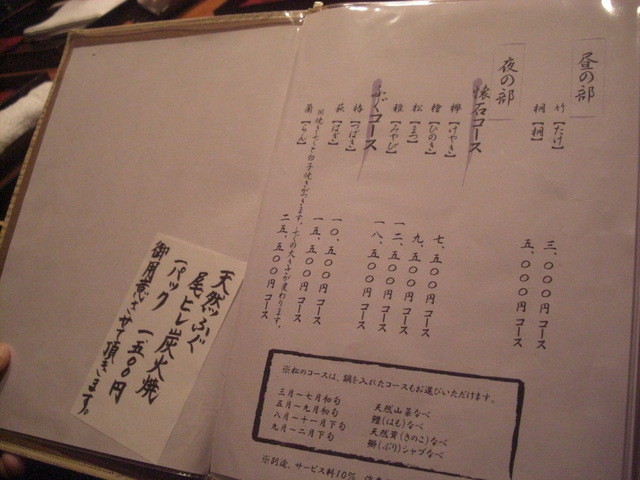 昼の部
竹【たけ】 三、〇〇〇円コース
桐【桐】 五、〇〇〇円コース
夜の部
懐石コース
欅【けやき】 七、五〇〇円コース
檜【ひのき】 九、五〇〇円コース
松【まつ】 一二、五〇〇円コース
雅【みやび】 一八、五〇〇円コース
ふぐコース
椿【つばき】 一〇、五〇〇円コース
萩【はぎ】 一五、五〇〇円コース
蘭【らん】 二五、五〇〇円コース
※松のコースは、鍋を入れたコースもお選びいただけます。
三月〜七月初旬 天然山菜なべ
五月〜九月初旬 鱧(はも)なべ
八月〜十一月下旬 天然茸(きのこ)なべ
九月〜二月下旬 鰤(ぶり)シャブなべ
※別途、サービス料10%
天然ふぐ
尾ヒレ炭火焼
一パック 一五〇〇円
御用意させて頂きます。